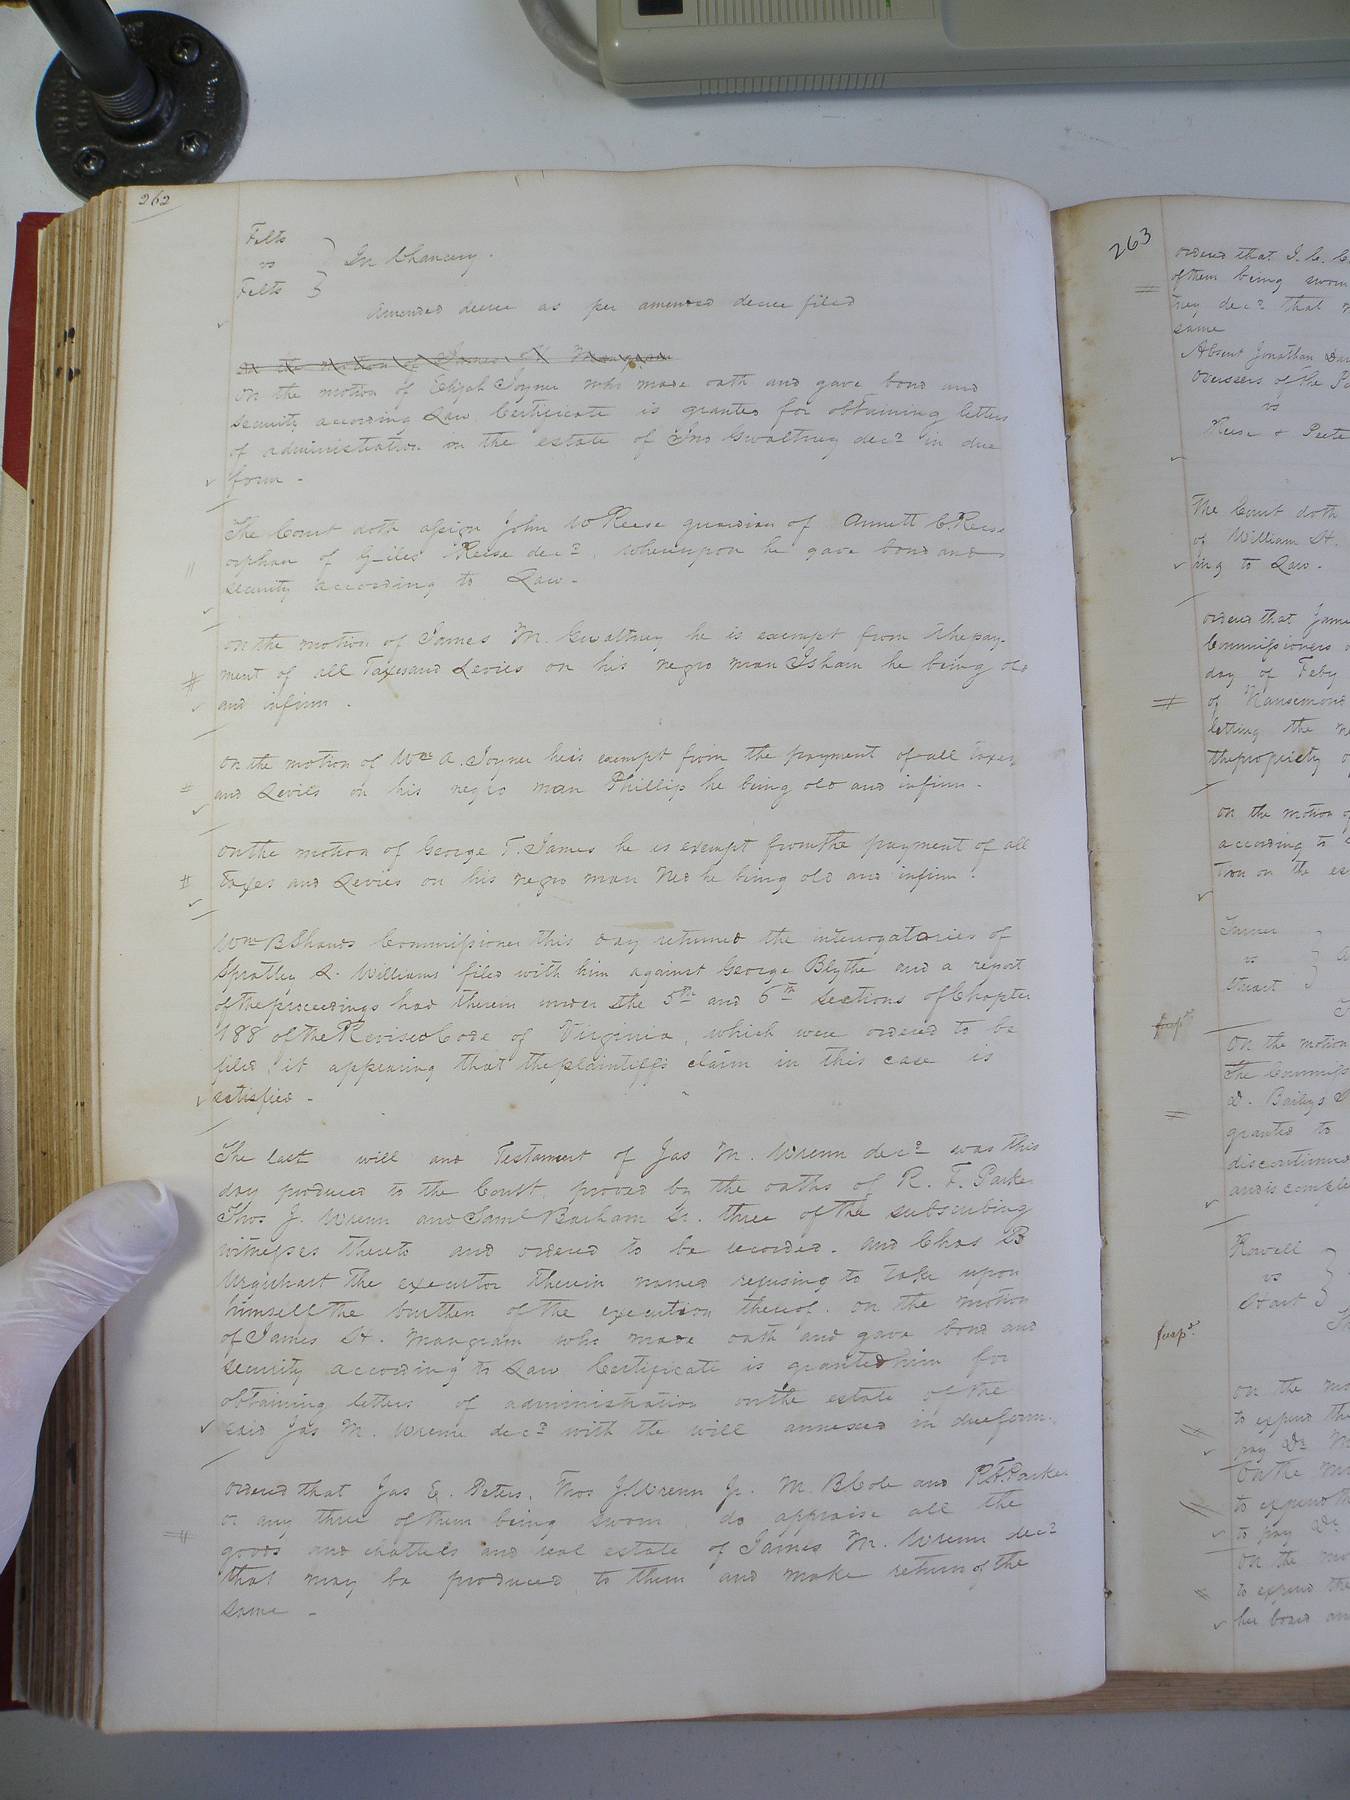 262
Felts
vs } In Chancery.
Felts
Amended decree as per amended decree filed
on the motion of James M
On the motion of Elijah Joyner who made oath and gave bond and
security according Law Certificate is granted for obtaining letters
of administration on the estate of Jno Gwaltney decd in due
form -
The Court doth assign John W Reese guardian of Annett C Reese
orphan of Giles Reese decd. Whereupon he gave bond and
security according to Law -
On the motion of James M. Gwaltney he is exempt from the pay-
ment of all Taxes and Levies on his negro man Isham he being old
and infirm.
On the motion of Wm A. Joyner he is exempt from the payment of all taxes
and Levies on his negro man Phillip he being old and infirm -
On the motion of George T. James he is exempt from the payment of all
taxes and Levies on his negro man Ned he being old and infirm.
Wm B Shands Commissioner this day returned the interrogatories of
Spratley & Williams filed with him against George Blythe and a report
of the proceedings had therein under the 5th and 6th sections of Chapter
188 of the Revised Code of Virginia, which were ordered to be
filed, it appearing that the plaintiffs claim in this case is
satisfied -
The last will and Testament of Jas M. Wrenn decd was this
day produced to the Court, proved by the oaths of R. F. Parker
Thos J. Wrenn and Saml Barham Sr. three of the subscribing
witnesses thereto and ordered to be recorded. and Chas B
Urquhart the executor therein named refusing to take upon
himself the burthen of the execution thereof. on the motion
of James H. Mangram who made oath and gave bond and
security according to Law Certificate is granted him for
obtaining letters of administration on the estate of the
said Jas M. Wrenn decd with the will annexed in due form.
Ordered that Jas E. Peters, Thos J. Wrenn Jr. M. B Cole and R F. Parker
or any three of them being sworn do appraise all the
goods and chattels and real estate of James M. Wrenn decd
that may be produced to them and make return of the
same -
263
ordered that J. C.
of them being sworn
decd that
same
Absent Jonathan
Overseers of the
vs
The Court doth
of William H.
ing to Law -
ordered that Jame
Commissioners
day of Feby
of Nansemond
letting the
the propriety of
on the motion of
according to
tion on the es
Turner
vs
Stuart
On the motion
The Commiss
D. Baileys
granted to
discontinued
and is comple
Rowell
vs
Hart
on the mo
to expend the
pay
On the mo
to expend th
to pay
On the mo
to expend the
her board an